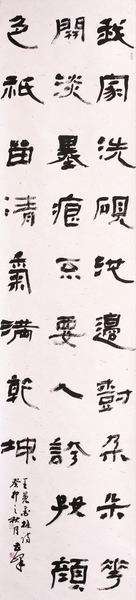 我家洗硯池邊尌朵朵花
開淡墨痕不要人誇好顔
色祇留清氣滿乾坤
王冕畫梅詩
癸卯之秋月